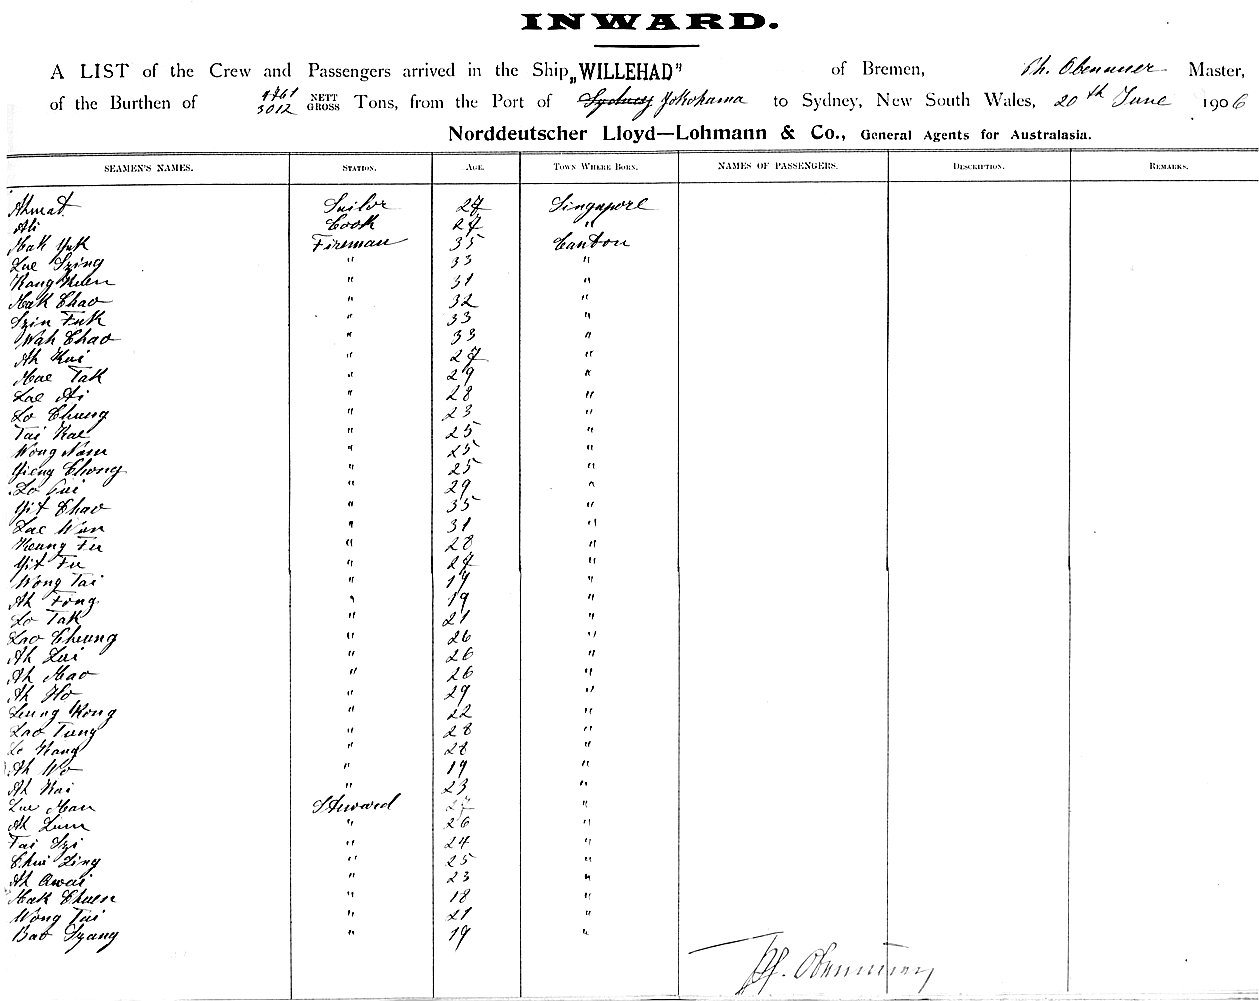 INWARD.
A LIST of the Crew and Passengers arrived in the Ship „WILLEHAD" of Bremen, Ph. Obenauer Master,
of the Burthen of 3012 NETT GROSS Tons, from the Port of Sydney Yokohama to Sydney, New South Wales, 20th June 1906
Norddeutscher Lloyd—Lohmann & Co., General Agents for Australasia.
SEAMEN'S NAMES. STATION. AGE. TOWN WHERE BORN. NAMES OF PASSENGERS. DESCRIPTION. REMARKS.
Ahmat Sailor 27 Singapore
Ali Cook 27 "
Mak Yuk Fireman 35 Canton
Lae Szing " 33 "
Kang Kuen " 31 "
Mak Chao " 32 "
Szin Fuk " 33 "
Wah Chao " 33 "
Ah Kui " 27 "
Mae Tak " 29 "
Lae Ai " 28 "
Lo Chung " 23 "
Tai Kae " 25 "
Wong Nam " 25 "
Yieng Chong " 25 "
Lo " 29 "
Yit Chao " 35 "
Lae Wan " 31 "
Keung Fu " 28 "
Yit Fu " 27 "
Wong Tai " 19 "
Ah Fong " 19 "
Lo Tak " 21 "
Lao Cheung " 26 "
Ah Lui " 26 "
Ah Mao " 26 "
Ah Ho " 29 "
Leung Kong " 22 "
Lao Tung " 28 "
Lo Kang " 28 "
Ah Wo " 19 "
Ah Kai " 23 "
Lue Man Steward 27 "
Ah Lum " 26 "
Tai Szi " 24 "
Chui Ling " 25 "
Ah Awai " 23 "
Mak Chuen " 18 "
Wong Tai " 21 "
Bao Szang " 19 "
Ph. Obenauer